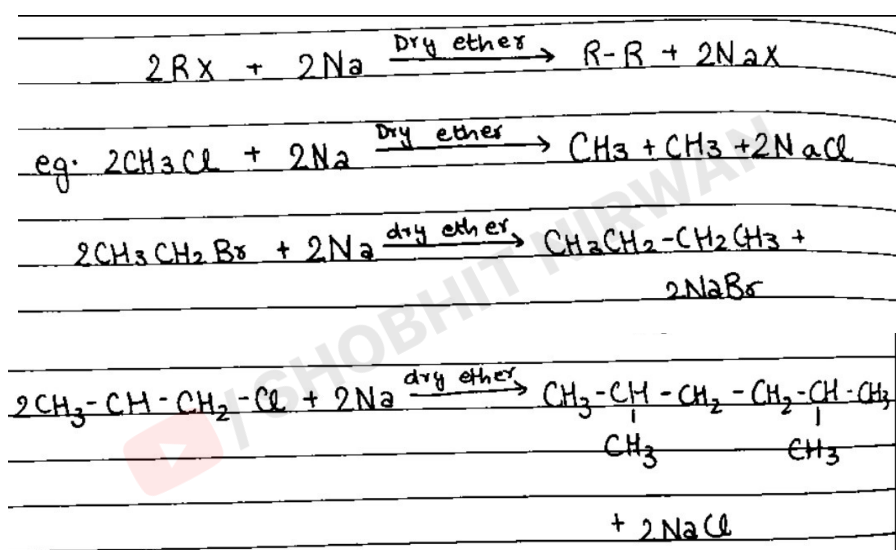 2RX + 2Na Dry ether → R-R + 2NaX
eg. 2CH3Cl + 2Na Dry ether → CH3 + CH3 + 2NaCl
2CH3CH2Br + 2Na dry ether → CH3CH2-CH2CH3 +
2NaBr
2CH3-CH-CH2-Cl + 2Na dry ether → CH3-CH-CH2-CH2-CH-CH3
CH3 CH3
+ 2NaCl
/SHOBHIT NIRWAN